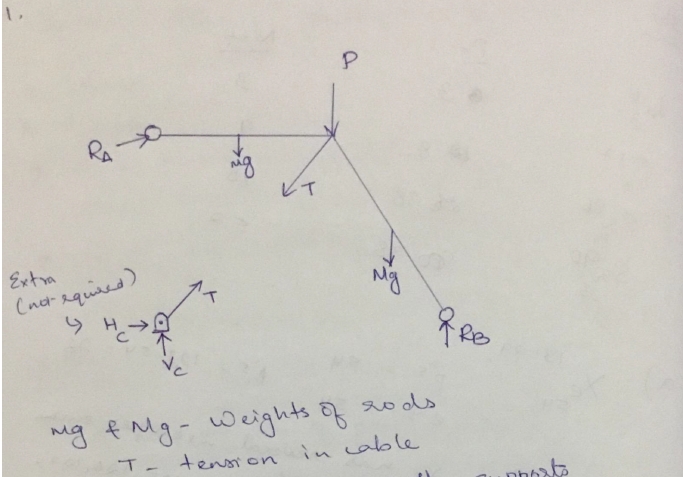 1.
P
RA
mg
T
Mg
RB
Extra
(not required)
↳ HC
T
VC
mg & Mg - Weights of rods
T - tension in cable
supports